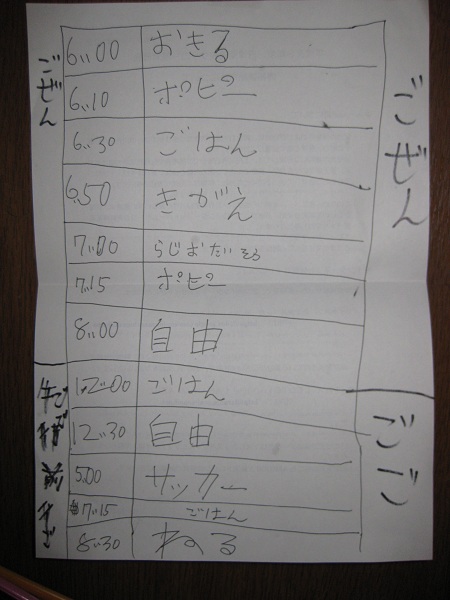 ごぜん
6:00 おきる
6:10 ポピー
6:30 ごはん
6:50 きがえ
7:00 らじおたいそう
7:15 ポピー
8:00 自由
12:00 ごはん
12:30 自由
5:00 サッカー
7:15 ごはん
8:30 ねる
ごぜん
ごご